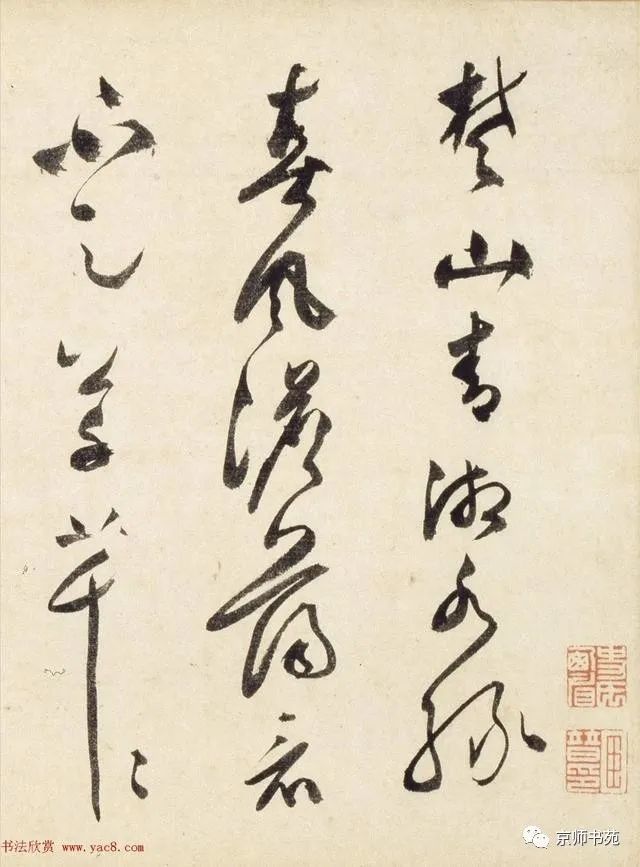 楚山青湘水綠
春風澹蕩看
不足草芊〻
书法欣赏 www.yac8.com
京师书苑